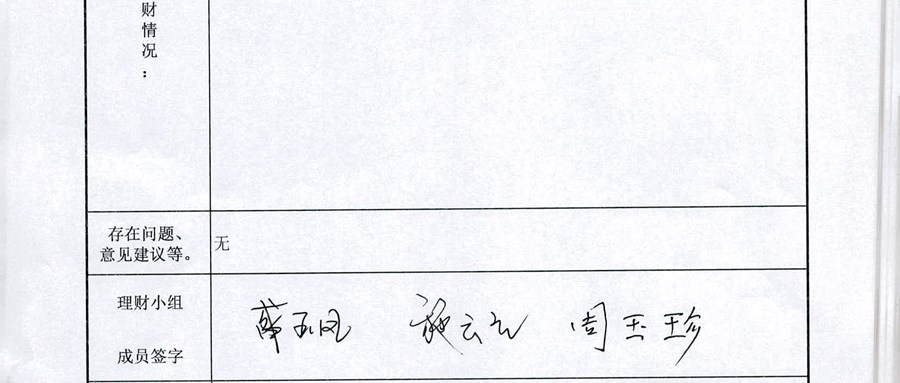 财
情
况
：
存在问题、
意见建议等。
无
理财小组
成员签字
周玉珍